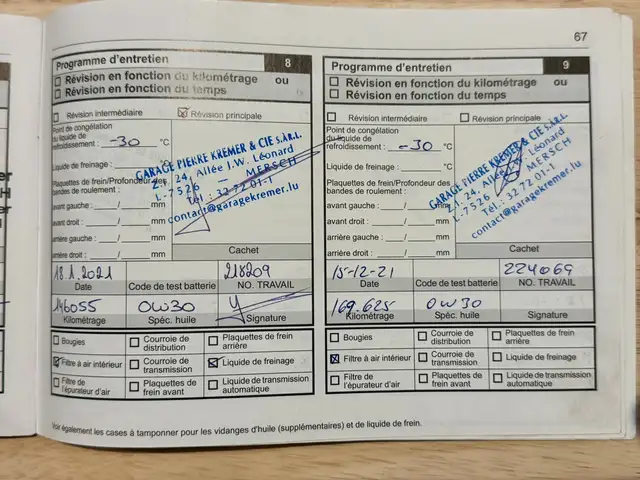 67
Programme d'entretien 8
Révision en fonction du kilométrage ou
Révision en fonction du temps
Révision intermédiaire Révision principale
Point de congélation
du liquide de
refroidissement : -30 °C
Liquide de freinage : °C
Plaquettes de frein/Profondeur des
bandes de roulement :
avant gauche : / mm
avant droit : / mm
arrière gauche : / mm
arrière droit : / mm
GARAGE PIERRE KREMER & CIE S.À.R.L.
Z.I. 24, Allée J.W. Léonard
L-7526 MERSCH
Tél.: 32 72 01-1
contact@garagekremer.lu
Cachet
18.1.2021 218209
Date Code de test batterie NO. TRAVAIL
146055 OW30
Kilométrage Spéc. huile Signature
Bougies Courroie de distribution Plaquettes de frein arrière
Filtre à air intérieur Courroie de transmission Liquide de freinage
Filtre de l'épurateur d'air Plaquettes de frein avant Liquide de transmission automatique
Programme d'entretien 9
Révision en fonction du kilométrage ou
Révision en fonction du temps
Révision intermédiaire Révision principale
Point de congélation
du liquide de
refroidissement : -30 °C
Liquide de freinage : °C
Plaquettes de frein/Profondeur des
bandes de roulement :
avant gauche : / mm
avant droit : / mm
arrière gauche : / mm
arrière droit : / mm
GARAGE PIERRE KREMER & CIE S.À.R.L.
Z.I. 24, Allée J.W. Léonard
L-7526 MERSCH
Tél.: 32 72 01-1
contact@garagekremer.lu
Cachet
15-12-21 224069
Date Code de test batterie NO. TRAVAIL
169.625 OW30
Kilométrage Spéc. huile Signature
Bougies Courroie de distribution Plaquettes de frein arrière
Filtre à air intérieur Courroie de transmission Liquide de freinage
Filtre de l'épurateur d'air Plaquettes de frein avant Liquide de transmission automatique
Voir également les cases à tamponner pour les vidanges d'huile (supplémentaires) et de liquide de frein.